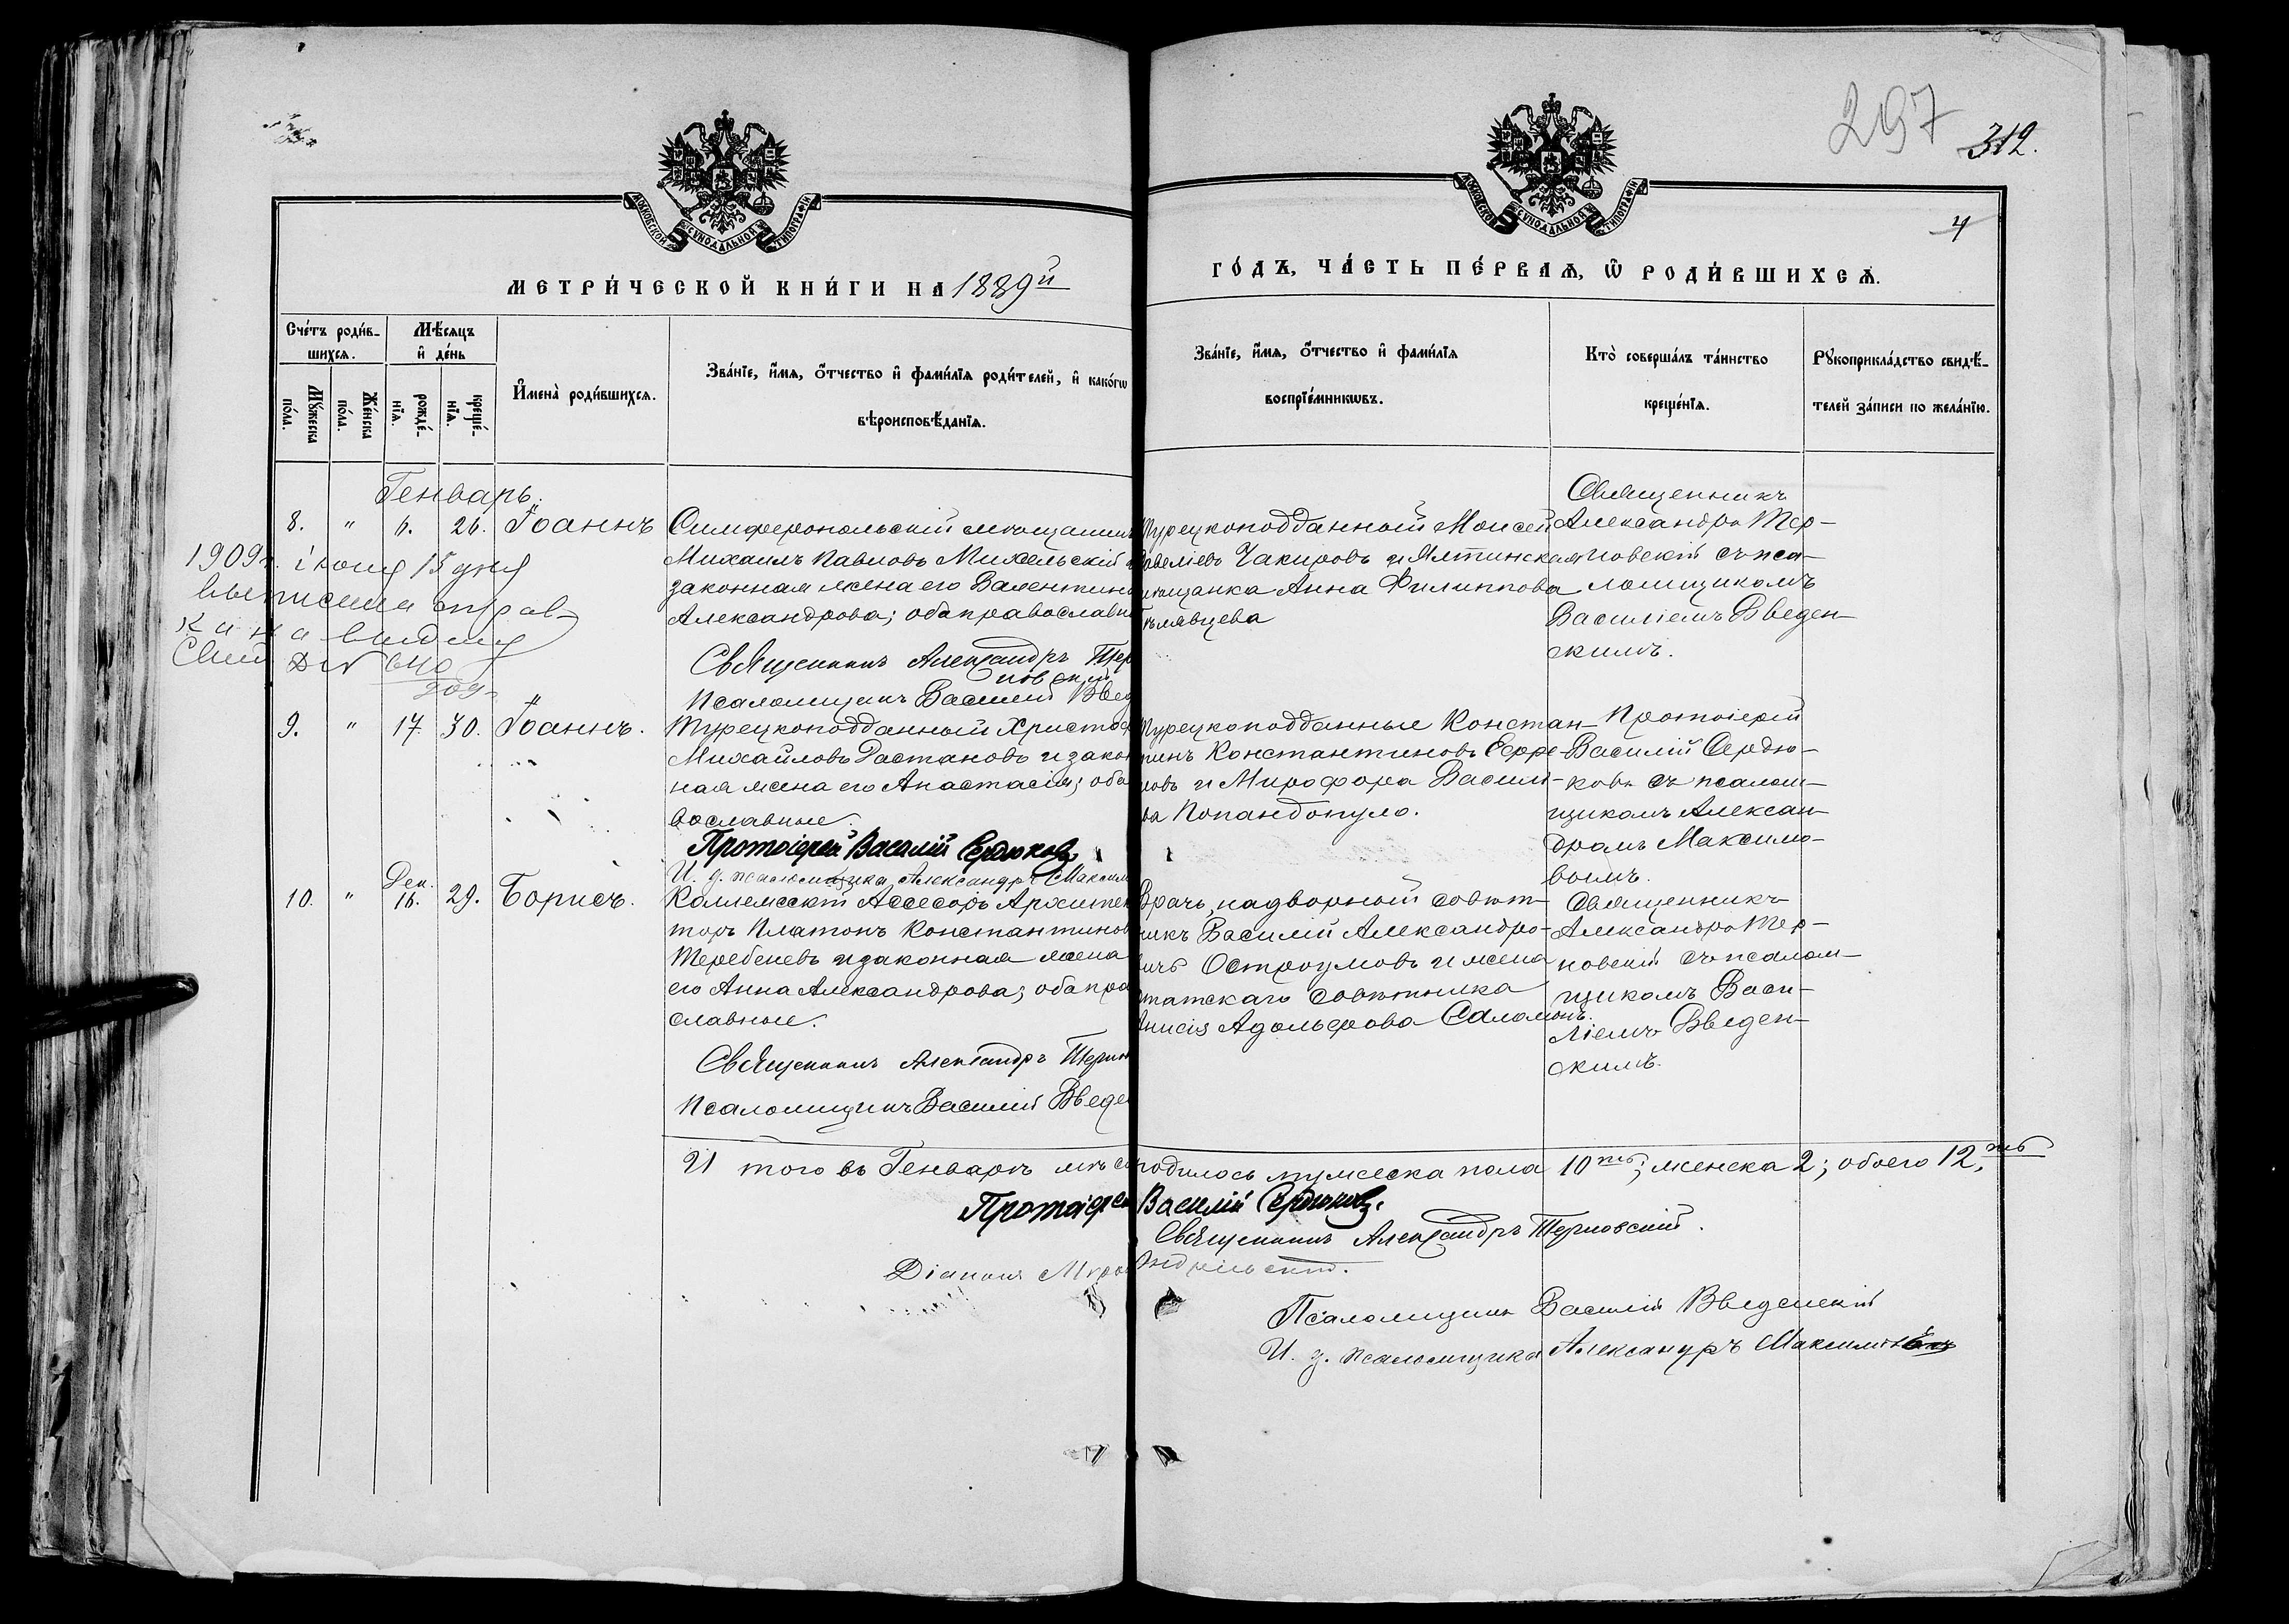 297
312.
4
МОСКОВСКОЙ СѴНОДАЛЬНОЙ ТИПОГРАФІИ
МОСКОВСКОЙ СѴНОДАЛЬНОЙ ТИПОГРАФІИ
МЕТРИ́ЧЕСКОЙ КНИ́ГИ НА 1889й
ГО́ДЪ, ЧА́СТЬ ПЕ́РВАЯ, Ѿ РОДИ́ВШИХСЯ.
Сче́тъ роди́в-
шихся.
Мѣ́сяцъ
и҆ де́нь
Мꙋ́жеска по́ла.
Же́нска по́ла.
рожде́-
нїя.
креще́-
нїя.
И҆мена̀ роди́вшихся.
Зва́нїе, и҆́мя, о҆́тчество и҆ фами́лїя роди́телей, и҆ како́гѡ
вѣроисповѣ́данїя.
Зва́нїе, и҆́мя, о҆́тчество и҆ фами́лїя
воспрїе́мникѡвъ.
Кто̀ соверша́лъ та́инство
креще́нїя.
Рꙋкоприкла́дство свидѣ́-
телей за́писи по жела́нїю.
Генварь.
8. " 6. 26. Іоаннъ
Симферопольскій мѣщанин
Михаилъ Павловъ Михельскій
законная жена его Валентина
Александрова; оба православн
Священникъ Александръ Тер
новскій
Псаломщикъ ВасилійВвед
Турецкоподданный Моисей
Савеліевъ Чакировъ и Ялтинская
мѣщанка Анна Филиппова
Священникъ
Александръ Тер-
новскій съ пса-
ломщикомъ
Василіемъ Введен-
скимъ.
1909г. іюня 15 дня
выписана справ-
ка на выдачу
9. " 17. 30. Іоаннъ.
Турецкоподданный Христоф
Михайловъ Растановъ и закон
ная жена его Анастасія; оба
вославные.
Протоіерей Василій Сердюковъ
И. д. псаломщика Александръ Максим
Турецкоподданные Констан-
тинъ Константиновъ Ефре-
мовъ и Мирофора Василь-
ва Попандопуло.
Протоіерей
Василій Сердю-
ковъ съ псалом-
щикомъ Алексан-
дромъ Максимо-
вымъ.
10. " Дек. 16. 29. Борисъ.
Коллежскій Ассесоръ Архитек
торъ Платонъ Константинов
Теребеневъ и законная жена
его Анна Александрова; оба пра
славные.
Священникъ Александръ Терно
Псаломщикъ Василій Введе
Врачъ, надворный совѣт-
никъ Василій Александро-
вичъ Остроумовъ и жена
статскаго совѣтника
Адольфова Саломонъ.
Священникъ
Александръ Тер-
новскій съ псалом-
щикомъ Васи-
ліемъ Введен-
скимъ.
И того въ Генварѣ мѣся родилось мужеска пола 10ть; женска 2; обоего 12ть
Протоіерей Василій Сердюковъ.
Священникъ Александръ Терновскій.
Діаконъ
Псаломщикъ Василій Введенскій
И. д. псаломщика Александръ Максимовъ